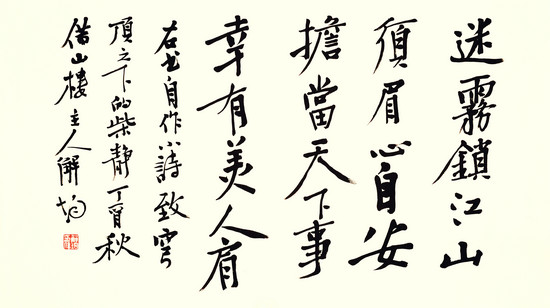 迷霧鎖江山
須眉心自安
擔當天下事
幸有美人肩
右書自作小詩致穹
頂之下的柴靜丁酉秋
借山樓主人解